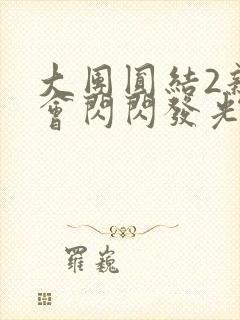 大團圓結2
會閃閃發光
羅巍